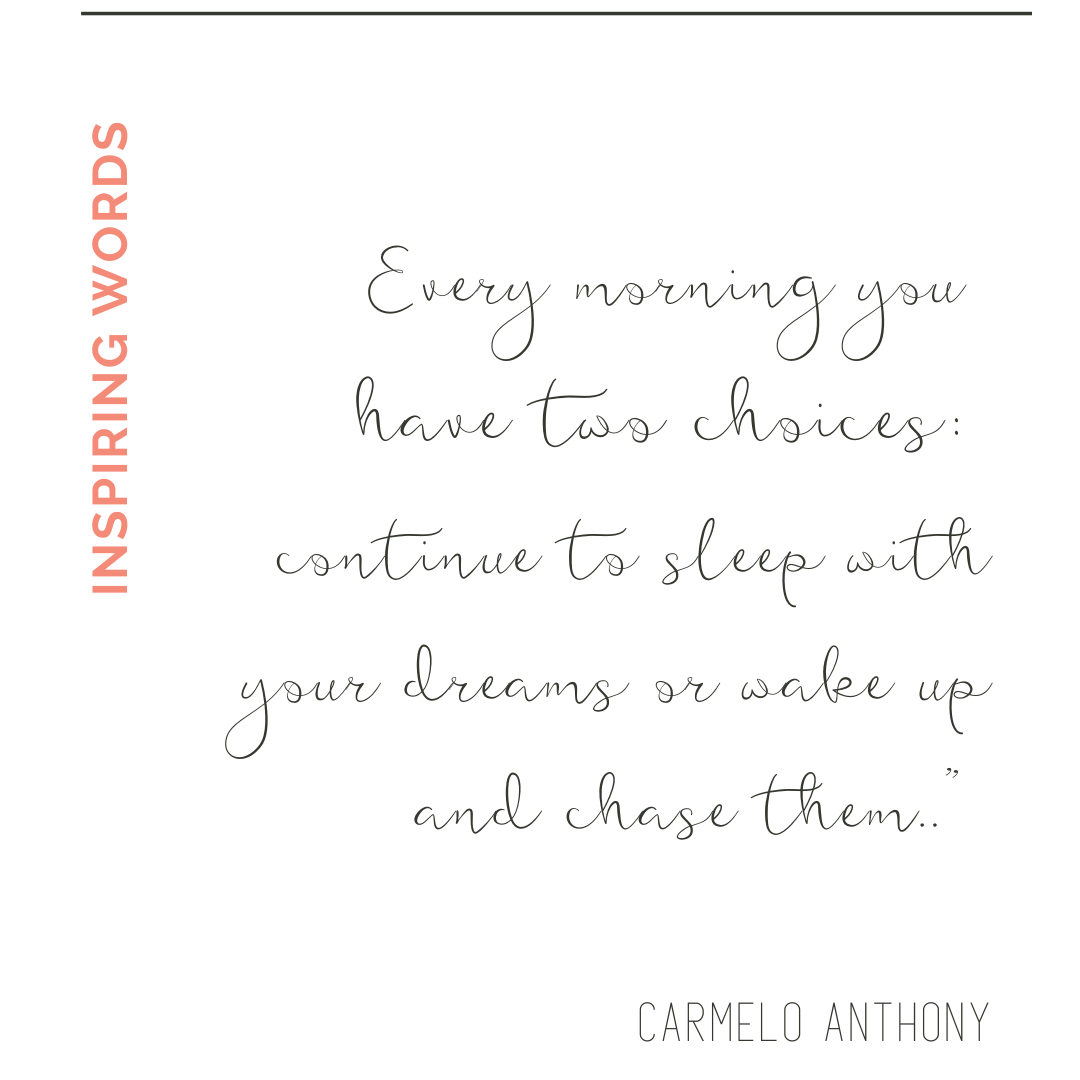 INSPIRING WORDS
Every morning you
have two choices:
continue to sleep with
your dreams or wake up
and chase them..”
CARMELO ANTHONY